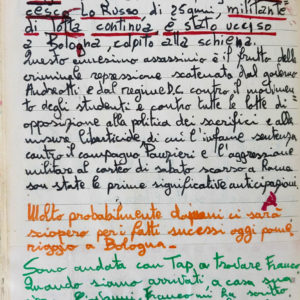 cesco Lo Russo, di 25anni, militante
di lotta continua, è stato ucciso
a Bologna, colpito alla schiena.
Questo ennesimo assassinio è il frutto della
criminale repressione scatenata dal governo
Andreotti e dal regime D.C. contro il movimen
to degli studenti e contro tutte le lotte di
opposizione alla politica dei sacrifici e alle
misure liberticide, di cui l'infame sentenza
contro il compagno Panzieri e l'aggressione
militare al corteo di sabato scorso a Roma
son state le prime significative anticipazioni.
Molto probabilmente domani ci sarà
sciopero per i fatti successi oggi pome
riggio a Bologna.
Sono andata con Tap a trovare Franco.
Quando siamo arrivati a casa sua